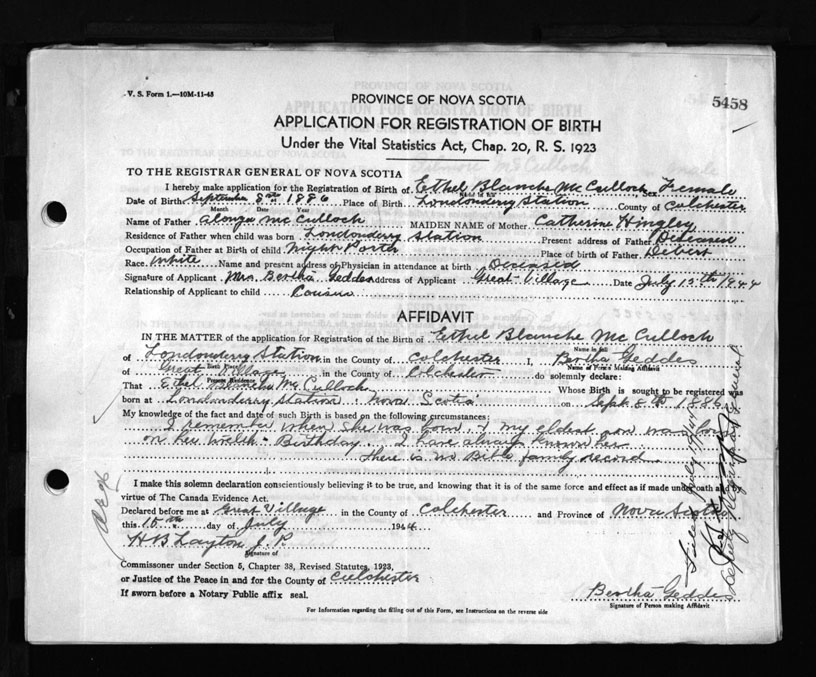 V. S. Form 1.—10M-11-43
5458
PROVINCE OF NOVA SCOTIA
APPLICATION FOR REGISTRATION OF BIRTH
Under the Vital Statistics Act, Chap. 20, R. S. 1923
TO THE REGISTRAR GENERAL OF NOVA SCOTIA
I hereby make application for the Registration of Birth of Ethel Blanche McCulloch Sex Female
Date of Birth September 8th 1886 Place of Birth Londonderry Station County of Colchester
Month Date Year
Name of Father Alonzo McCulloch MAIDEN NAME of Mother Catherine Hingley
Residence of Father when child was born Londonderry Station Present address of Father Diseased
Occupation of Father at Birth of child Night Porter Place of birth of Father Debert
Race White Name and present address of Physician in attendance at birth Deceased
Signature of Applicant Mrs. Bertha Geddes Address of Applicant Great Village Date July 15th 1944
Relationship of Applicant to child Cousin
AFFIDAVIT
IN THE MATTER of the application for Registration of the Birth of Ethel Blanche McCulloch
Name in full
of Londonderry Station in the County of Colchester I, Bertha Geddes
Birth Place Name of Form's Making Affidavit
of Great Village in the County of Colchester do solemnly declare:
Present Residence
That Ethel Blanche McCulloch Whose Birth is sought to be registered was
born at Londonderry Station Nova Scotia on Sept 8th 1886
My knowledge of the fact and date of such Birth is based on the following circumstances:
I remember when she was born & my eldest son was born
on her Birthday. I have always known her
There is no Bible family record
I make this solemn declaration conscientiously believing it to be true, and knowing that it is of the same force and effect as if made under oath and by
virtue of The Canada Evidence Act.
Declared before me at Great Village in the County of Colchester and Province of Nova Scotia
this 15th day of July 1944
H B Layton J. P.
Signature of
Commissioner under Section 5, Chapter 38, Revised Statutes, 1923,
or Justice of the Peace in and for the County of Colchester
If sworn before a Notary Public affix seal.
Bertha Geddes
Signature of Person making Affidavit
For Information regarding the filling out of this Form, see Instructions on the reverse side
Deputy Registrar General